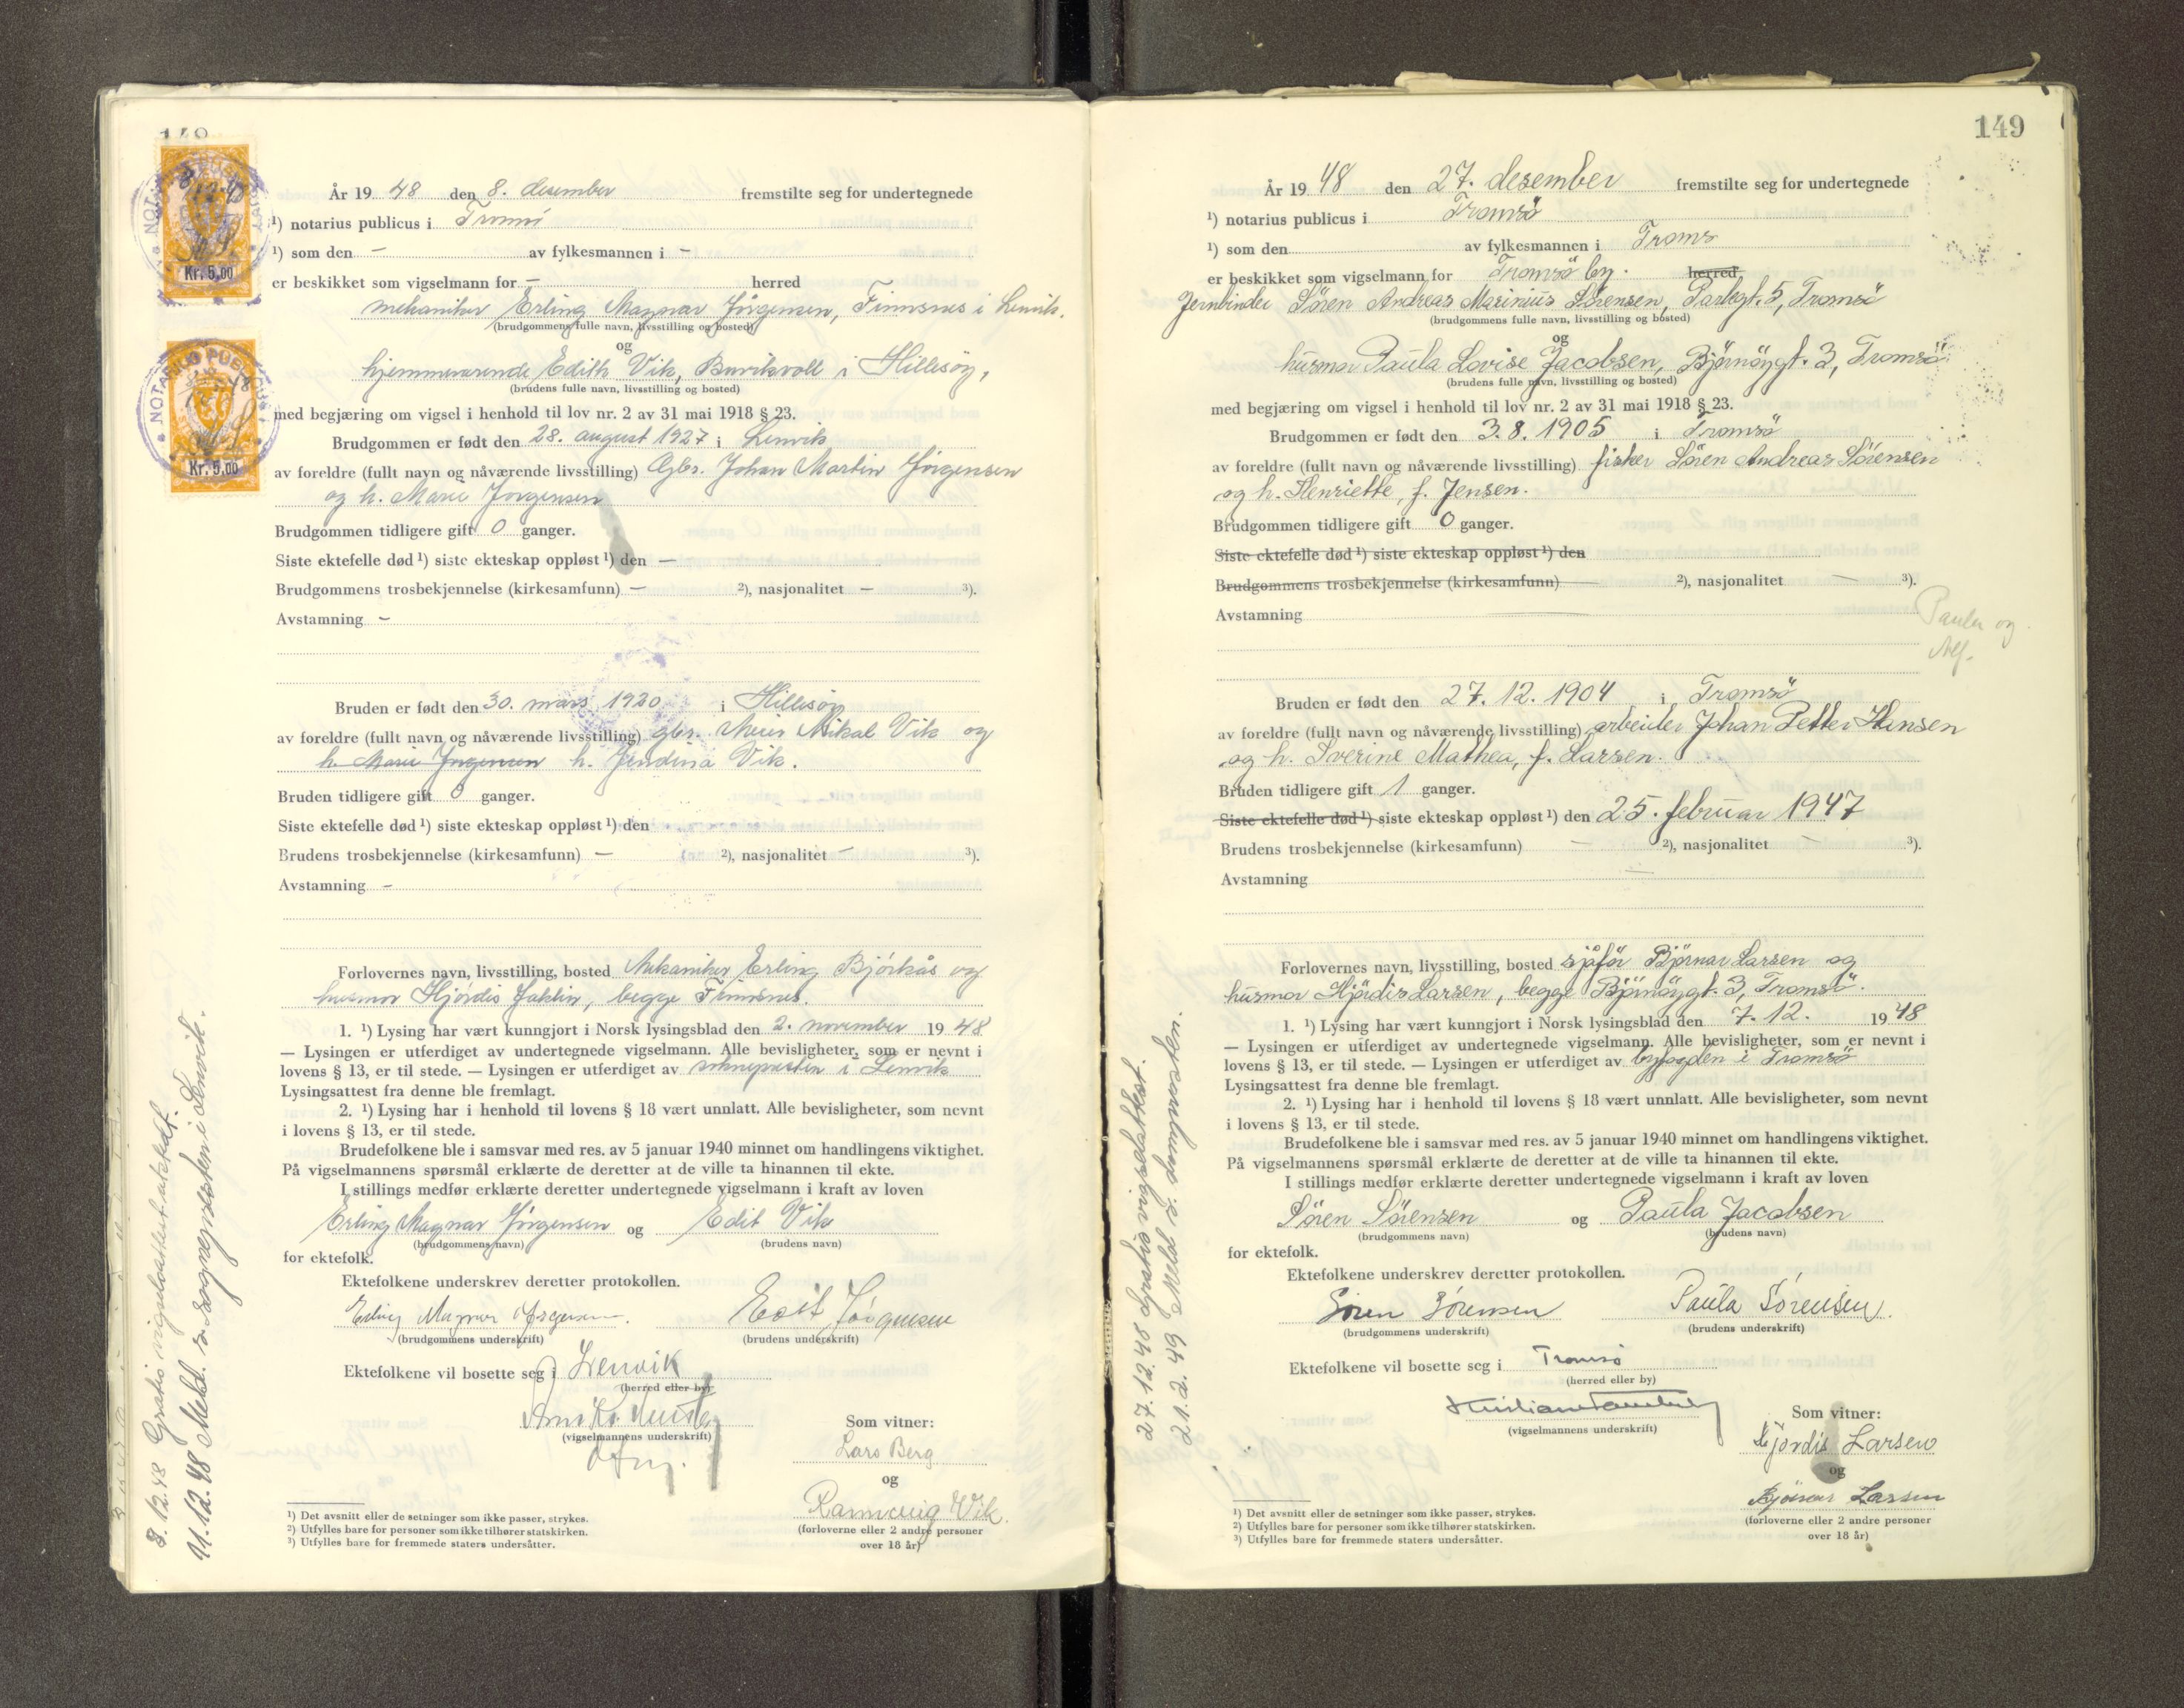 148
NOTARIUS PUBLICUS
8/12-48
Kr. 5,00
NOTARIUS PUBLICUS
Kr. 5,00
År 19 48 den 8. desember fremstilte seg for undertegnede
¹) notarius publicus i Tromsö
¹) som den – av fylkesmannen i –
er beskikket som vigselmann for – herred
mekaniker Erling Magnar Jörgensen, Finnsnes i Lenvik.
(brudgommens fulle navn, livsstilling og bosted)
og
hjemmeværende Edith Vik, i Hillesöy,
(brudens fulle navn, livsstilling og bosted)
med begjæring om vigsel i henhold til lov nr. 2 av 31 mai 1918 § 23.
Brudgommen er født den 28. august 1927 i Lenvik
av foreldre (fullt navn og nåværende livsstilling) Gbr. Johan Martin Jörgensen
og h. Marie Jörgensen
Brudgommen tidligere gift 0 ganger.
Siste ektefelle død ¹) siste ekteskap oppløst ¹) den –
Brudgommens trosbekjennelse (kirkesamfunn) – ²), nasjonalitet – ³).
Avstamning –
Bruden er født den 30. mars 1930 i Hillesöy
av foreldre (fullt navn og nåværende livsstilling) gbr. Meier Mikal Vik og
h. Marie Jörgensen h. Jendina Vik.
Bruden tidligere gift 0 ganger.
Siste ektefelle død ¹) siste ekteskap oppløst ¹) den
Brudens trosbekjennelse (kirkesamfunn) – ²), nasjonalitet – ³).
Avstamning –
Forlovernes navn, livsstilling, bosted Mekaniker Erling Bjórkås og
husmor Hjórdis Jaklin, begge Finnsnes.
1. ¹) Lysing har vært kunngjort i Norsk lysingsblad den 2. november 19 48
— Lysingen er utferdiget av undertegnede vigselmann. Alle bevisligheter, som er nevnt i
lovens § 13, er til stede. — Lysingen er utferdiget av soknepresten i Lenvik
Lysingsattest fra denne ble fremlagt.
2. ¹) Lysing har i henhold til lovens § 18 vært unnlatt. Alle bevisligheter, som nevnt
i lovens § 13, er til stede.
Brudefolkene ble i samsvar med res. av 5 januar 1940 minnet om handlingens viktighet.
På vigselmannens spørsmål erklærte de deretter at de ville ta hinannen til ekte.
I stillings medfør erklærte deretter undertegnede vigselmann i kraft av loven
Erling Magnar Jörgensen og Edit Vik
(brudgommens navn) (brudens navn)
for ektefolk.
Ektefolkene underskrev deretter protokollen.
Erling Magnar Jörgensen. Edit Jörgensen
(brudgommens underskrift) (brudens underskrift)
Ektefolkene vil bosette seg i Lenvik
(herred eller by)
(vigselmannens underskrift)
Som vitner:
Lars Berg
og
Rannveig Vik.
(forloverne eller 2 andre personer
over 18 år)
¹) Det avsnitt eller de setninger som ikke passer, strykes.
²) Utfylles bare for personer som ikke tilhører statskirken.
³) Utfylles bare for fremmede staters undersåtter.
8.12.48 Gratis vigselsattest utstedt.
11.12.48 Meld. s. sognepresten i Lenvik.
149
År 19 48 den 27. desember fremstilte seg for undertegnede
¹) notarius publicus i Tromsö
¹) som den av fylkesmannen i Troms
er beskikket som vigselmann for Tromsö by. herred
Jernbinder Sören Andreas Marinius Sörensen, Parkgt. 5, Tromsö
(brudgommens fulle navn, livsstilling og bosted)
og
husmor Paula Lovise Jacobsen, Björnöygt. 3, Tromsö
(brudens fulle navn, livsstilling og bosted)
med begjæring om vigsel i henhold til lov nr. 2 av 31 mai 1918 § 23.
Brudgommen er født den 3.8.1905 i Tromsö
av foreldre (fullt navn og nåværende livsstilling) fisker Sören Andreas Sörensen
og h. Henriette, f. Jensen.
Brudgommen tidligere gift 0 ganger.
Siste ektefelle død ¹) siste ekteskap oppløst ¹) den
Brudgommens trosbekjennelse (kirkesamfunn) — ²), nasjonalitet — ³).
Avstamning
Paula og
Alf.
Bruden er født den 27.12.1904 i Tromsö
av foreldre (fullt navn og nåværende livsstilling) arbeider Johan Petter Hansen
og h. Severine Mathea, f. Larsen.
Bruden tidligere gift 1 ganger.
Siste ektefelle død ¹) siste ekteskap oppløst ¹) den 25. februar 1947
Brudens trosbekjennelse (kirkesamfunn) – ²), nasjonalitet – ³).
Avstamning –
Forlovernes navn, livsstilling, bosted sjåför Björnar Larsen og
husmor Hjördis Larsen, begge Björnöygt. 3, Tromsö.
1. ¹) Lysing har vært kunngjort i Norsk lysingsblad den 7.12. 19 48
— Lysingen er utferdiget av undertegnede vigselmann. Alle bevisligheter, som er nevnt i
lovens § 13, er til stede. — Lysingen er utferdiget av byfogden i Tromsö
Lysingsattest fra denne ble fremlagt.
2. ¹) Lysing har i henhold til lovens § 18 vært unnlatt. Alle bevisligheter, som nevnt
i lovens § 13, er til stede.
Brudefolkene ble i samsvar med res. av 5 januar 1940 minnet om handlingens viktighet.
På vigselmannens spørsmål erklærte de deretter at de ville ta hinannen til ekte.
I stillings medfør erklærte deretter undertegnede vigselmann i kraft av loven
Sören Sörensen og Paula Jacobsen
(brudgommens navn) (brudens navn)
for ektefolk.
Ektefolkene underskrev deretter protokollen.
Sören Sörensen Paula Sörensen.
(brudgommens underskrift) (brudens underskrift)
Ektefolkene vil bosette seg i Tromsö
(herred eller by)
(vigselmannens underskrift)
Som vitner:
Hjördis Larsen
og
Björnar Larsen
(forloverne eller 2 andre personer
over 18 år)
¹) Det avsnitt eller de setninger som ikke passer, strykes.
²) Utfylles bare for personer som ikke tilhører statskirken.
³) Utfylles bare for fremmede staters undersåtter.
27.12.48 Gratis vigselattest.
21.2.49 Meld. s. domprosten.